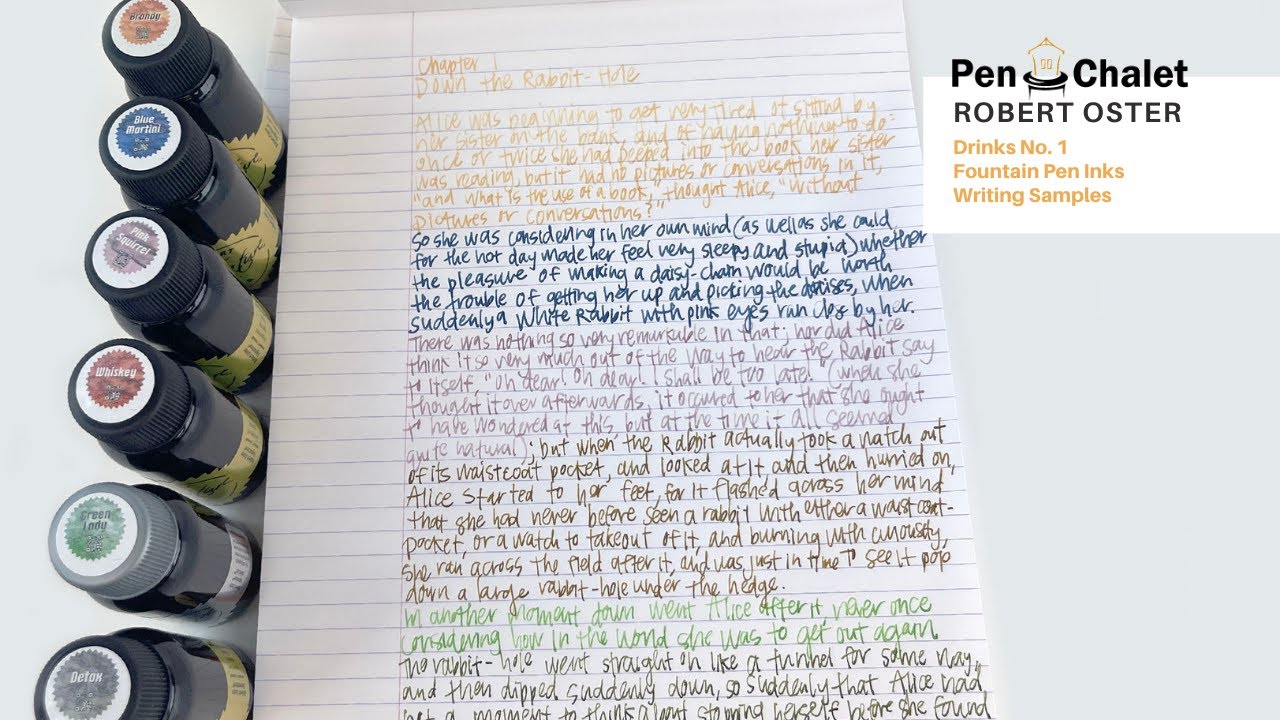 Brandy
Blue Martini
Pink Squirrel
Whiskey
Green Lady
Detox
Chapter 1
Down the Rabbit-Hole
Alice was beginning to get very tired of sitting by
her sister on the bank, and of having nothing to do:
once or twice she had peeped into the book her sister
was reading, but it had no pictures or conversations in it,
"and what is the use of a book," thought Alice, "without
pictures or conversations?"
So she was considering in her own mind (as well as she could
for the hot day made her feel very sleepy and stupid) whether
the pleasure of making a daisy-chain would be worth
the trouble of getting her up and picking the daisies, when
suddenly a White Rabbit with pink eyes ran clos by her.
There was nothing so very remarkable in that; nor did Alice
think it so very much out of the way to hear the Rabbit say
to itself, "Oh dear! Oh dear! I shall be too late!" (when she
thought it over afterwards, it occured to her that she ought
to have wondered at this, but at the time it all seemed
quite natural); but when the Rabbit actually took a watch out
of its waistcoat pocket, and looked at it, and then hurried on,
Alice started to her feet, for it flashed across her mind
that she had never before seen a rabbit with either a waistcoat-
pocket, or a watch to take out of it, and burning with curiousity,
she ran across the field after it, and was just in time to see it pop
down a large rabbit-hole under the hedge.
In another moment down went Alice after it, never once
considering how in the world she was to get out again
The rabbit-hole went straight on like a tunnel for some way,
and then dipped suddenly down, so suddenly that Alice had
not a moment to think about stopping herself before she found
Pen Chalet
ROBERT OSTER
Drinks No. 1
Fountain Pen Inks
Writing Samples